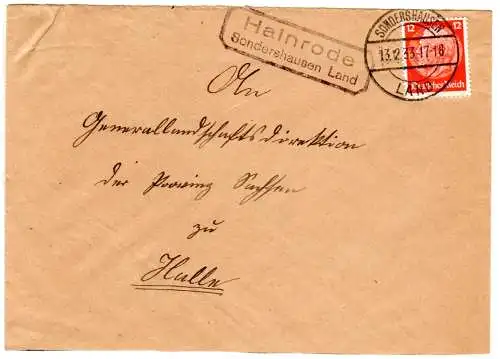 Hainrode
Sondershausen Land
SONDERSHAUSEN
13.2.33.17-18
LAND
12 12
Deutsches Reich
An
Generallandschaftsdirektion
der Provinz Sachsen
zu
Halle